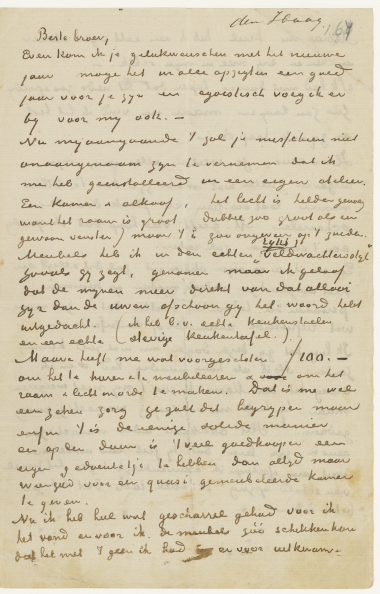 den Haag
164
Beste broer,
Even kom ik je gelukwenschen met het nieuwe
jaar moge het in alle opzigten een goed
jaar voor je zyn en egoistisch voeg ik er
by voor my ook. —
Nu my aangaande 't zal je misschien niet
onaangenaam zyn te vernemen dat ik
me heb geinstalleerd in een eigen atelier.
Een kamer & alkoof, het licht is helder genoeg
want het raam is groot dubbel zoo groot als een
gewoon venster) maar 't is zoo ongeveer op 't zuiden.
Meubels heb ik in den echten "veldwachtersstyl"
zooals gy zegt, genomen maar ik geloof
dat de mynen meer direkt van dat allooi
zyn dan de uwen ofschoon gy het woord hebt
uitgedacht. (ik heb b.v. echte keukenstoelen
en een echte stevige keukentafel.)
Mauve heeft me wat voorgeschoten f 100.—
om het te huren & te meubileeren & om het
raam & licht in orde te maken. Dat is me wel
een zorg ge zult dit begrypen maar
enfin 't is de eenige solide manier
en op den duur is 't veel goedkooper een
eigen geduentetje te hebben dan altyd maar
weer geld voor een quasi gemeubileerde kamer
te geven.
Nu ik heb heel wat gescharrel gehad voor ik
het vond en voor ik de meubels zóó schikken kon
dat het met 't geen ik had er voor uitkwam.